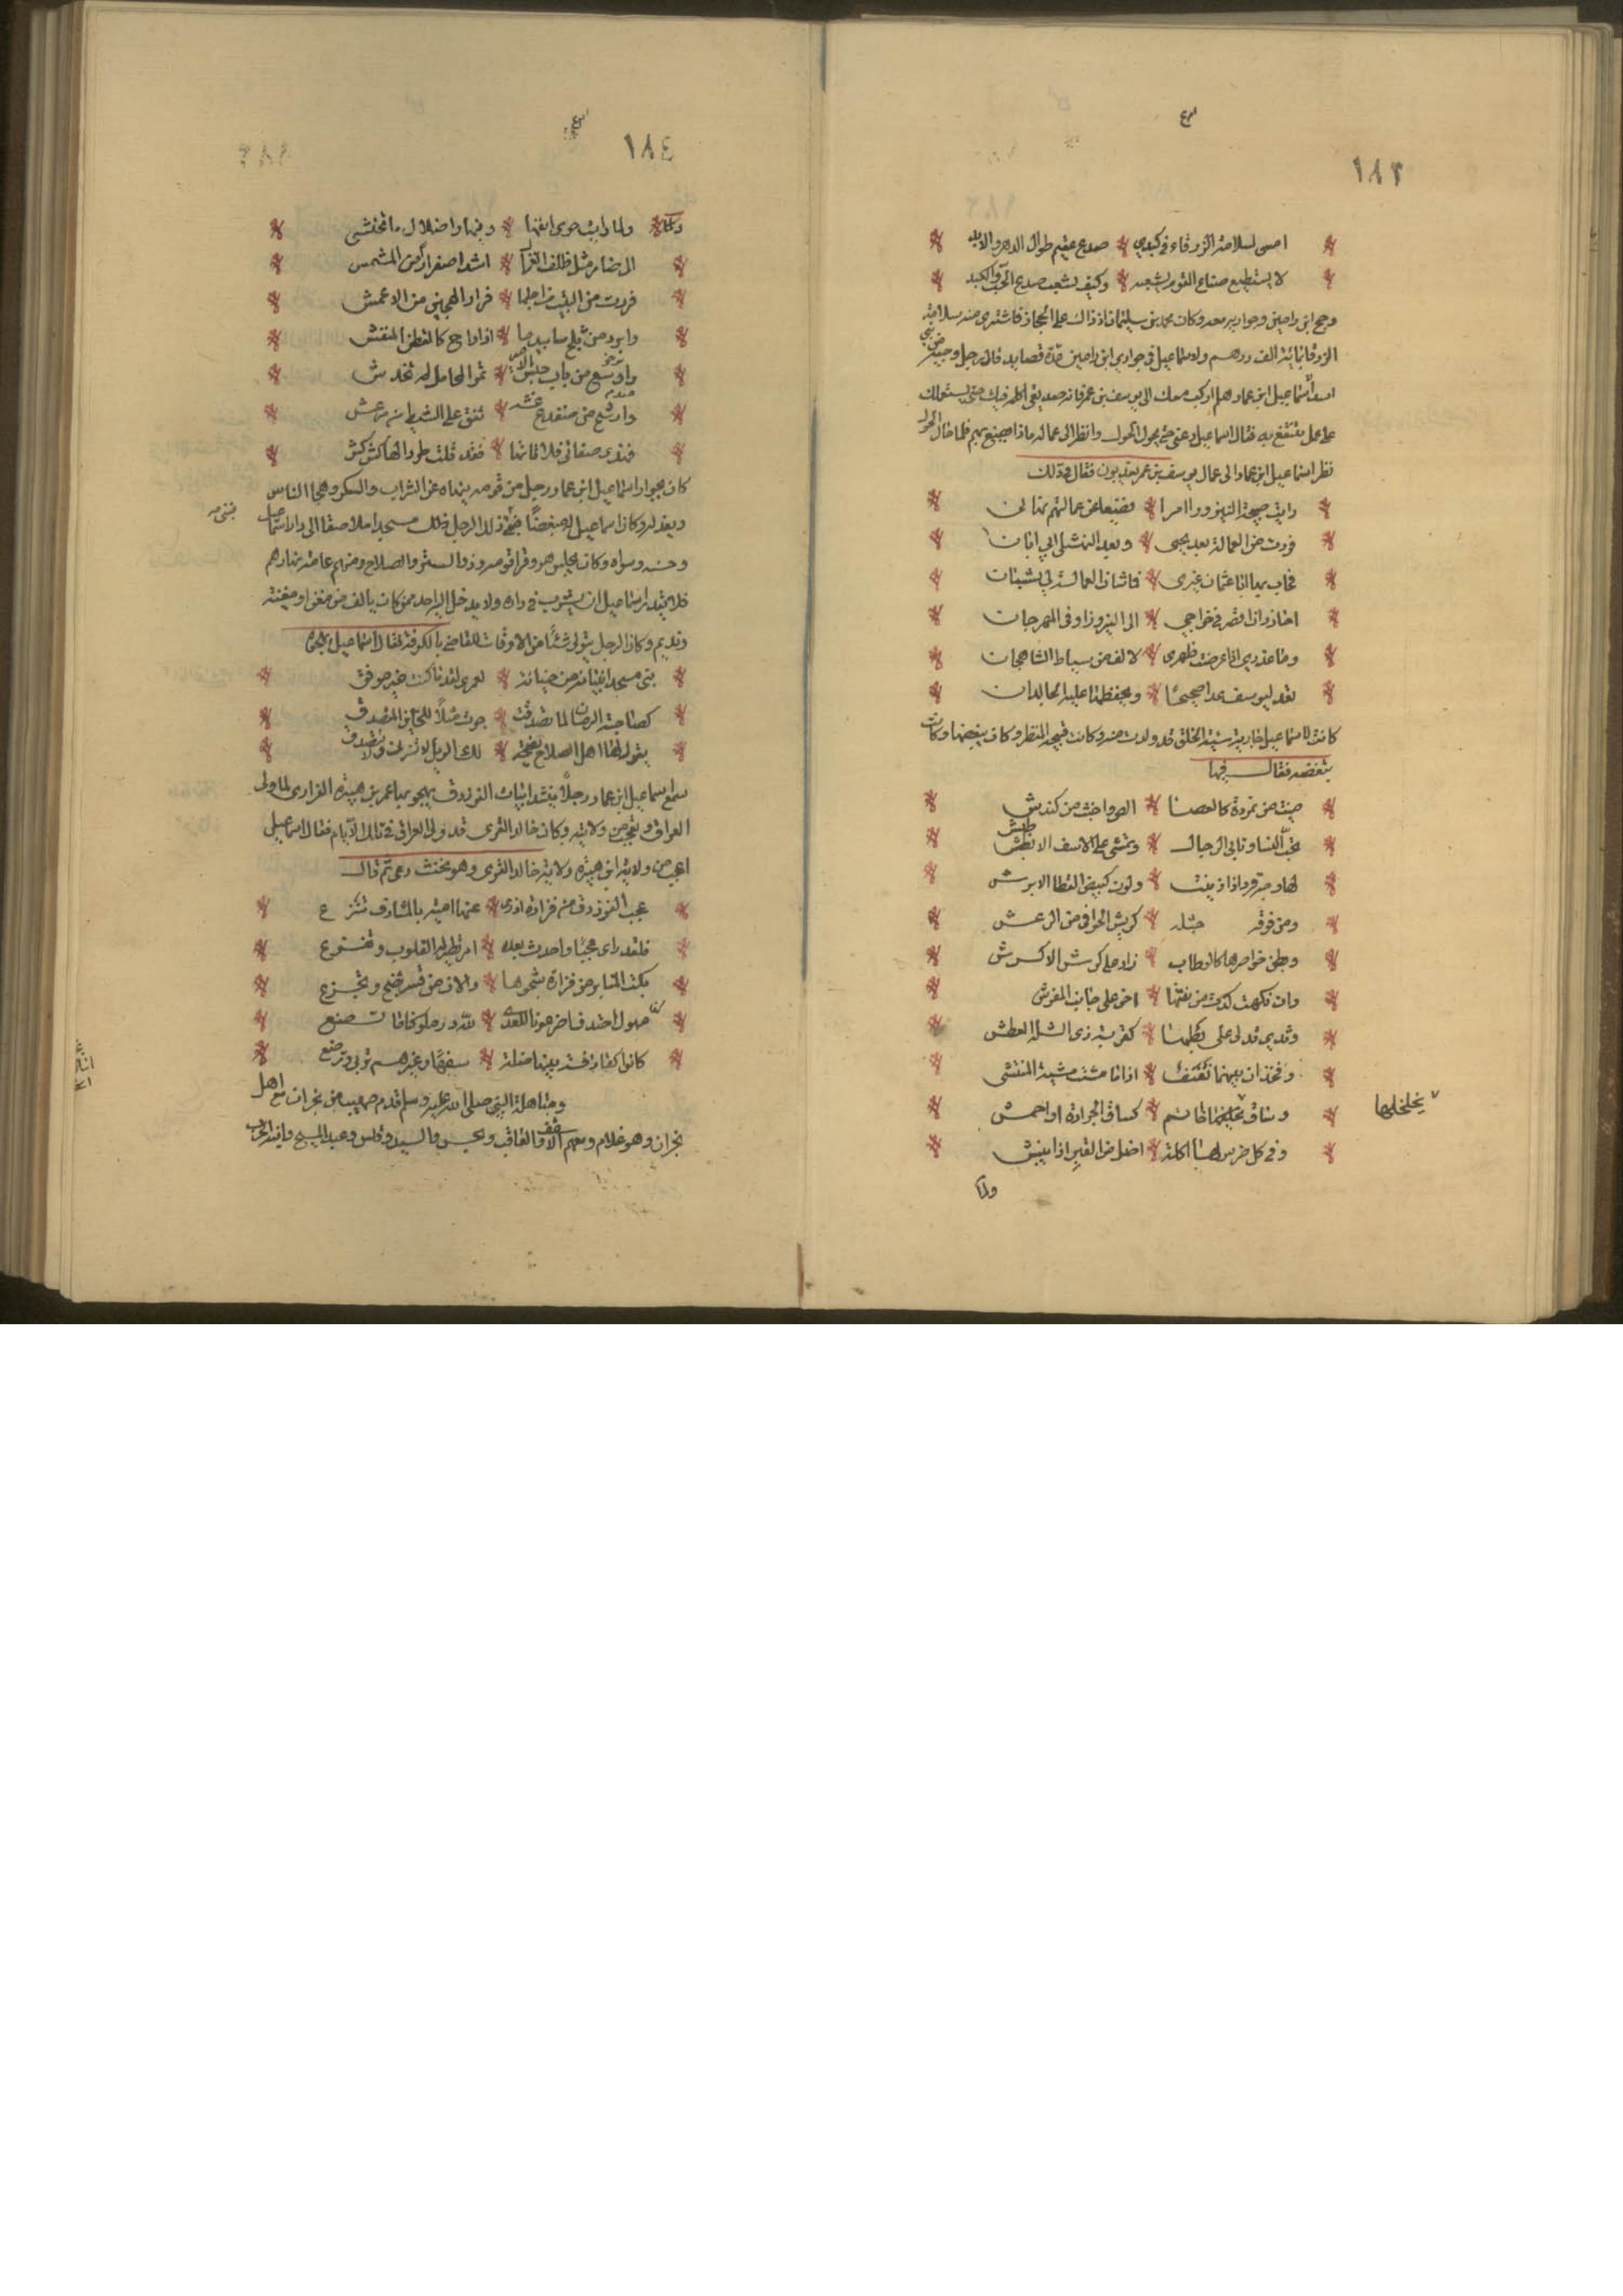 ١٨٣
امسى لسلامة الزرقاء في كبدي صدع مقيم طوال الدهر والابد
لا يستطيع صناع القوم يشعبه وكيف يشعب صدع الحب في الكبد
وحج ابن رامين وجواريه معه وكان محمد بن سليمان اذ ذاك على الحجاز فاشترى منه سلامة
الزرقا بمائة الف درهم ولاسماعيل في جواري ابن رامين عدة قصايد قال رجل وجيه من بني
اسد لاسماعيل ابن عمار هلم اركب معك الى يوسف بن عمر فانه صديقي اكلمه فيك حتى يستعملك
على عمل تنتفع به فقال اسماعيل دعني حتى يحول الحول وانظر الى عماله ماذا يصنع بهم فلما حال الحول
نظر اسماعيل ابن عمار الى عمال يوسف بن عمر يعذبون فقال في ذلك
رايت صبيحة النيروز امرا فضيعا عن عمالتهم نهاني
فررت من العمالة بعد يحيى وبعد النهشلي ابي ابان
احاذر ان اقصر في خراجي الى النيروز او في المهرجان
كانت لاسماعيل جارية سيئة الخلق قد ولدت منه وكانت قبيحة المنظر وكان يبغضها وكانت
تبغضه فقال فيها
بليت من نمردة كالعصا الص واخبث من كندش
تحب النسا وتابى الرجال وتمشي مع الاسفه الاطيش
لها وجه قرد اذا زينت ولون كبيض القطا الابرش
ومن فوقه جثلة كريش الخوافي من الرعش
وبطن خواصرها كالوطاب زاد على كرش الاكرش
وان نكهت كدت من نتنها اخر على جانب المفرش
وثدي تدلى على بطنها كقربة ذي الثلة المعطش
وفخذان بينهما نفنف اذا ما مشت مشية المنتشي
وساق يخلخلها خاتم كساق الجرادة او احمش
يخلخلها
وفي كل ضرس لها اكلة اضل من القبر اذا ينبش
ولما
١٨٤
ولما رايت خوى انفها وفيها واضلال ما تختشي
الى ضامر مثل ظلف الغزال اشد اصفرارا من المشمش
فررت من البيت من اجلها فرار الهجين من الاعمش
وابرد من ثلج ساتيدما اذا راح كالقطن المنفش
واوسع من باب جسر الامير تمر المحامل لم تخدش
وارسح من ضفدع عثة تنق على الشط من مرعش
فهذي صفاتي فلا تاتها فقد قلت طردا لها كش كش
كان بجوار اسماعيل ابن عمار رجل من قومه ينهاه عن الشراب والسكر وهجا الناس
ويعذله وكان اسماعيل له مبغضا فبنى ذلك الرجل مسجدا ملاصقا الى دار اسماعيل
وحسنه وسواه وكان يجلس هو وقراقومه وذوو الستر والصلاح ومنهم عامة نهارهم
فلا يقدر اسماعيل ان يشرب في داره ولا يدخل اليه احد ممن كان يالف من مغن او مغنية
ونديم وكان الرجل يتولى شيئا من الاوقات للقاضي بالكوفة فقال اسماعيل يهجوه
بنى مسجدا بنيانه من خيانة لعمري لقد ما كنت غير موفق
كصاحبة الرمان لما تصدقت جرت مثلا للخائن المتصدق
يقول لها اهل الصلاح نصيحة لك الويل لا تزني ولا تتصدقي
سمع اسماعيل ابن عمار رجلا ينشد ابيات الفرزدق يهجو بها عمر بن هبيرة الفزاري لما ولي
العراق ويتعجب من ولايته وكان خالد القسري قد ولي العراق في تلك الايام فقال اسماعيل
اعجب من ولاية ابن هبيرة ولاية خالد القسري وهو مخنث دعي ثم قال
عجب الفرزدق من فزارة ان راى عنها امية بالمشارق تنزع
فلقد راى عجبا واحدث بعده امر تطير له القلوب وتفزع
بكت المنابر من فزارة شجوها والان من قسر تضج وتجزع
كانوا كقاذفة بنيها ضلة سفها وغيرهم تربي وترضع
ومباهلة النبي صلى الله عليه وسلم قدم صهيب من نجران مع اهل
نجران وهو غلام ومعهم الاسقف والعاقب ويحنس والسيد وقيس وعبد المسيح وابنه الحرث